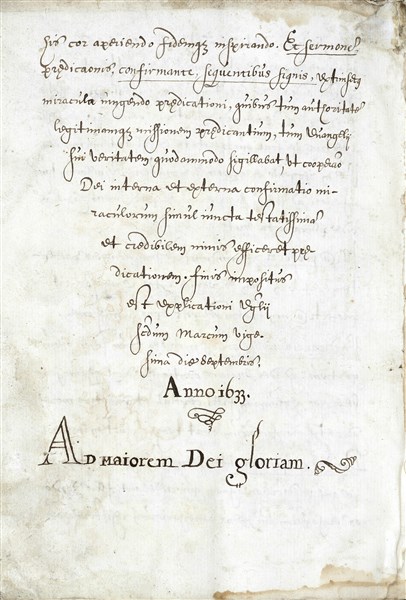 sis cor aperiendo fidemqз inspirando. Et sermonē
prædicaōnis, confirmante, sequentibus signis, extrinseca
miracula iungendo prædicationi, quibus tum authoritatē
legitimamqз missionem prædicantium, tum Euangelij
sui veritatem quodammodo sigillabat, ut cooperatio
Dei interna et externa confirmatio mi-
raculorum simul iuncta testatissimā
et credibilem nimis efficeret præ
dicationem. finis impositus
est explicationi Euglij
scdum Marcum vige-
sima die septembris.
Anno 1633.
Ad maiorem Dei gloriam.